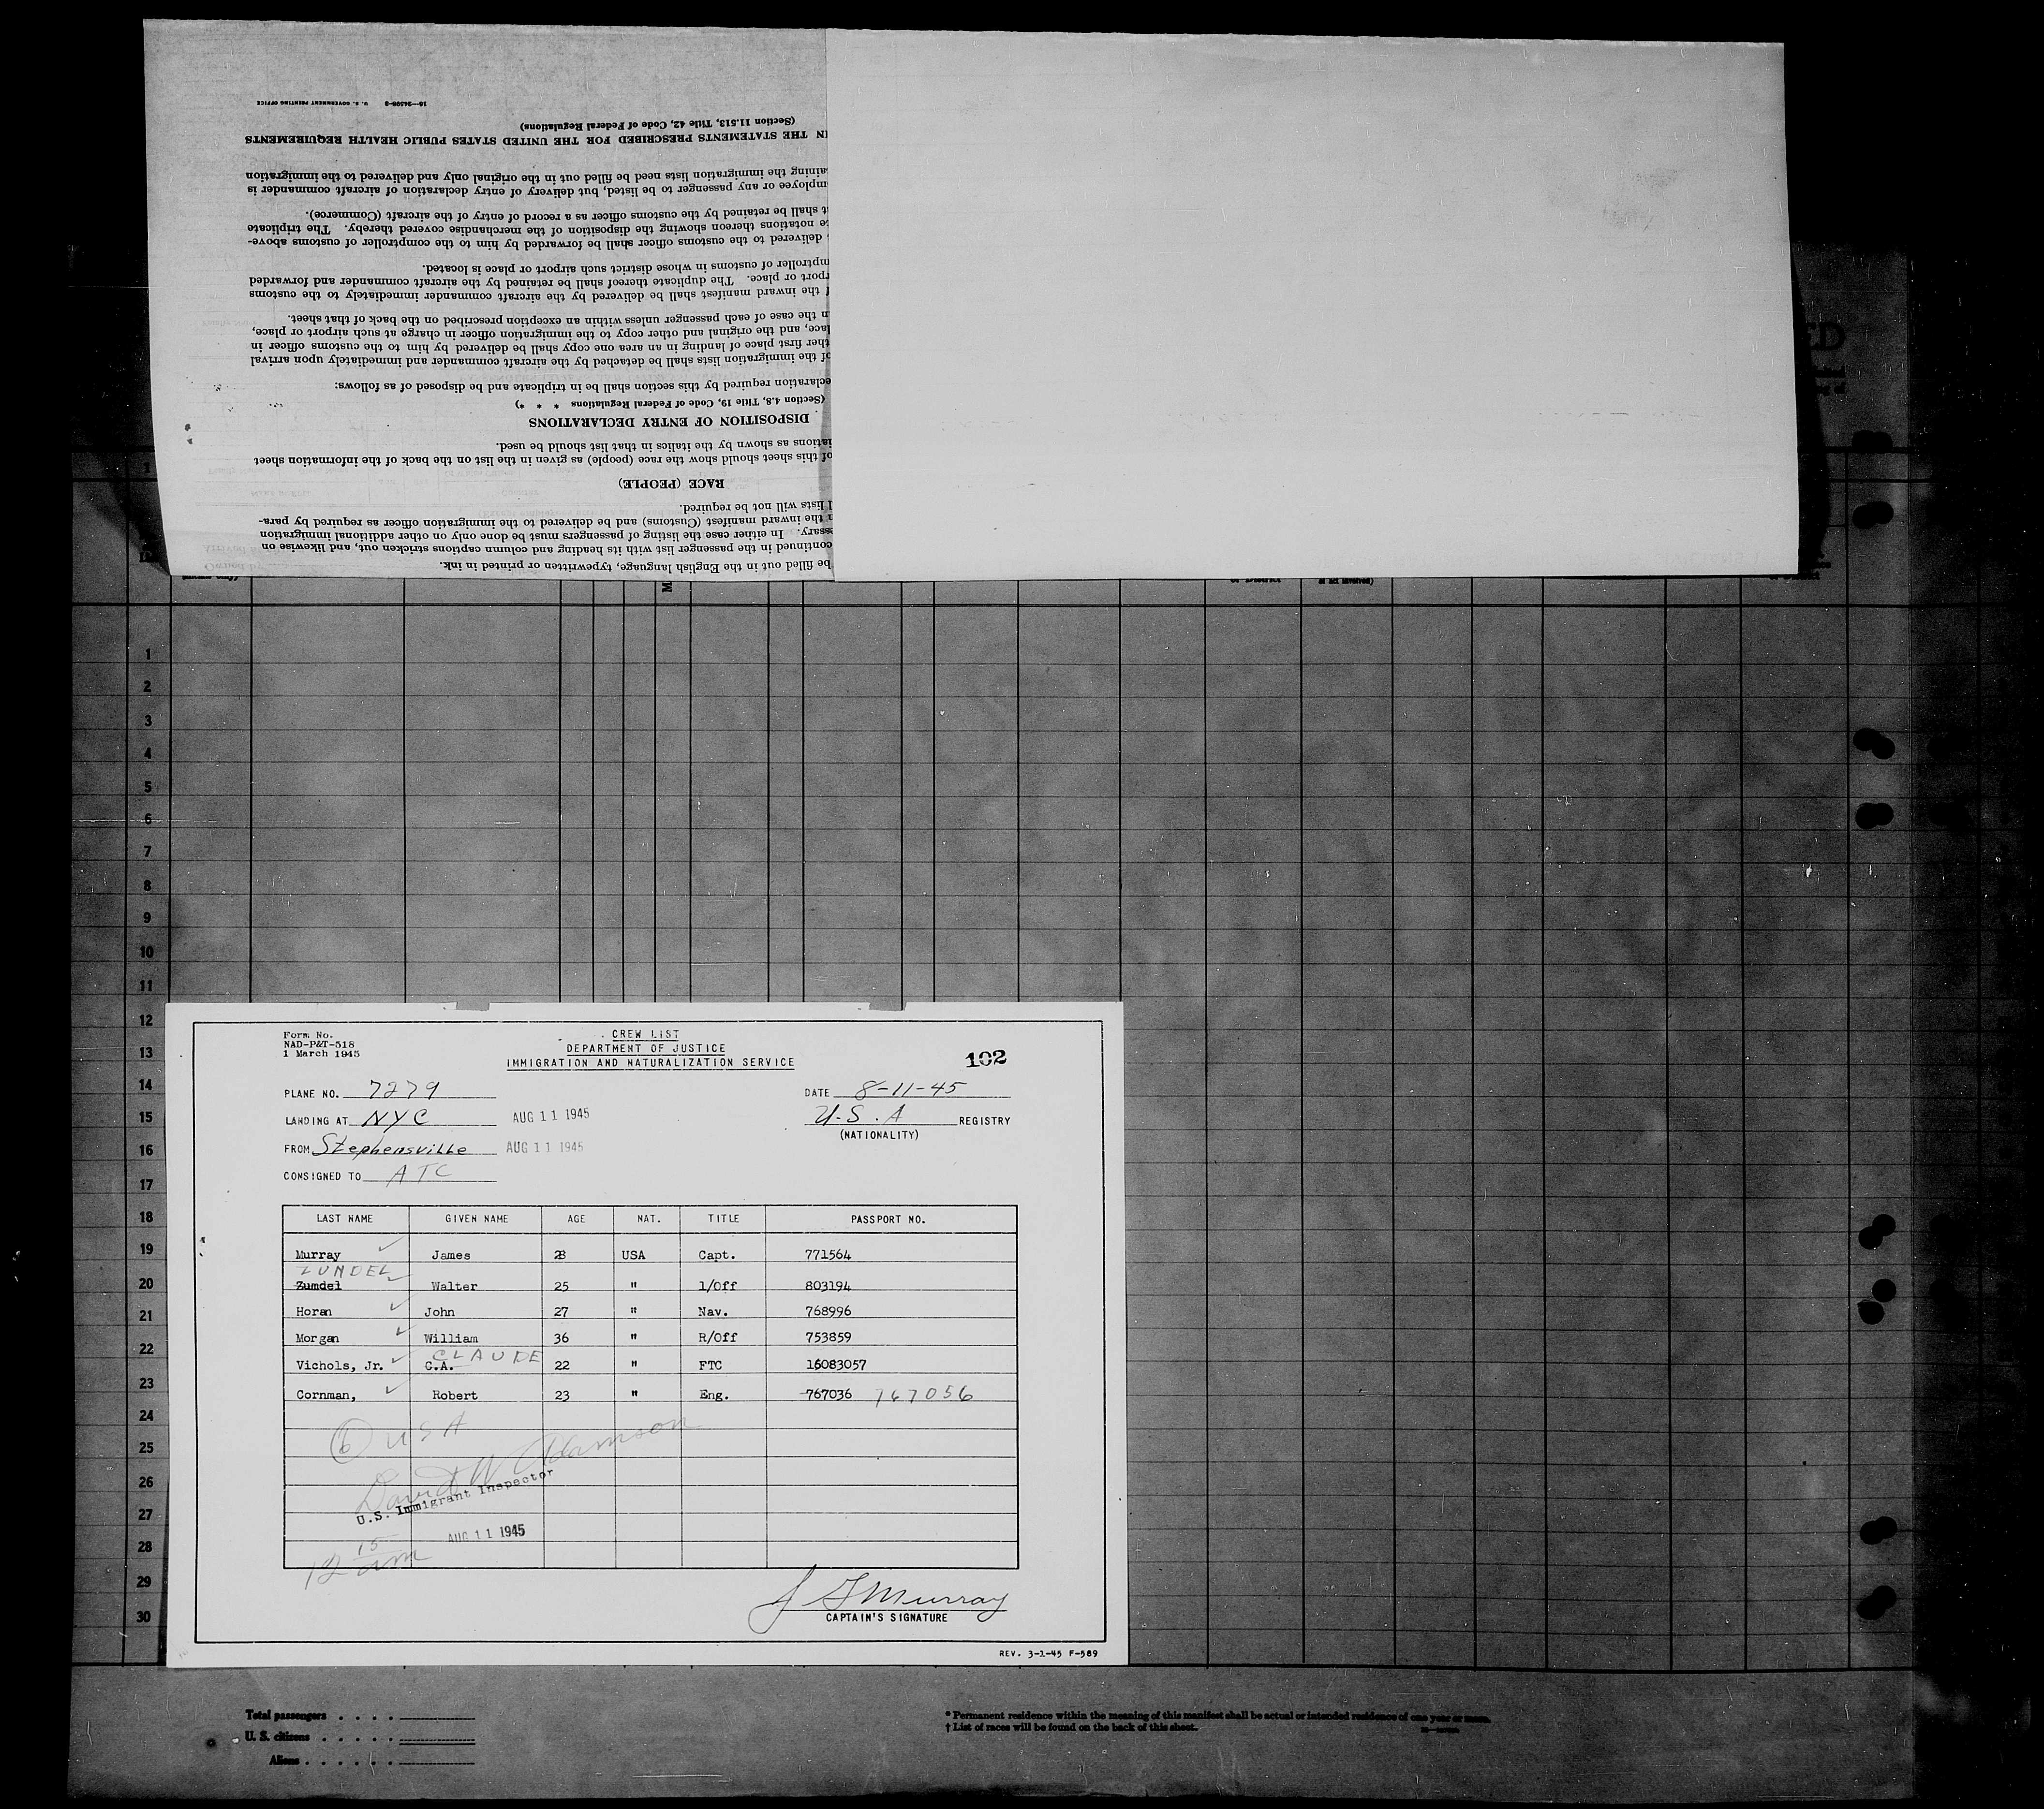 16—24598-3 U. S. GOVERNMENT PRINTING OFFICE
(Section 11.513, Title 42, Code of Federal Regulations)
IN THE STATEMENTS PRESCRIBED FOR THE UNITED STATES PUBLIC HEALTH REQUIREMENTS
taining the immigration lists need be filled out in the original only and delivered to the immigration
mployee or any passenger to be listed, but delivery of entry declaration of aircraft commander is
t shall be retained by the customs officer as a record of entry of the aircraft (Commerce).
e notations thereon showing the disposition of the merchandise covered thereby. The triplicate
delivered to the customs officer shall be forwarded by him to the comptroller of customs above-
mptroller of customs in whose district such airport or place is located.
rport or place. The duplicate thereof shall be retained by the aircraft commander and forwarded
f the inward manifest shall be delivered by the aircraft commander immediately to the customs
n the case of each passenger unless within an exception prescribed on the back of that sheet.
lace, and the original and other copy to the immigration officer in charge at such airport or place,
ther first place of landing in an area one copy shall be delivered by him to the customs officer in
of the immigration lists shall be detached by the aircraft commander and immediately upon arrival
eclaration required by this section shall be in triplicate and be disposed of as follows:
(Section 4.8, Title 19, Code of Federal Regulations * * *)
DISPOSITION OF ENTRY DECLARATIONS
iations as shown by the italics in that list should be used.
of this sheet should show the race (people) as given in the list on the back of the information sheet
RACE (PEOPLE)
l lists will not be required.
n the inward manifest (Customs) and be delivered to the immigration officer as required by para-
ssary. In either case the listing of passengers must be done only on other additional immigration
continued in the passenger list with its heading and column captions stricken out, and likewise on
be filled out in the English language, typewritten or printed in ink.
1
2
3
4
5
6
7
8
9
10
11
12
13
14
15
16
17
18
19
20
21
22
23
24
25
26
27
28
29
30
Form No.
NAD-P&T-518
1 March 1945
CREW LIST
DEPARTMENT OF JUSTICE
IMMIGRATION AND NATURALIZATION SERVICE
102
PLANE NO. 7279 DATE 8-11-45
LANDING AT NYC AUG 11 1945 U.S.A REGISTRY
(NATIONALITY)
FROM Stephensville AUG 11 1945
CONSIGNED TO ATC
LAST NAME GIVEN NAME AGE NAT. TITLE PASSPORT NO.
Murray James 28 USA Capt. 771564
ZUNDEL
Zumdel Walter 25 " 1/Off 803194
Horan John 27 " Nav. 768996
Morgan William 36 " R/Off 753859
CLAUDE
Vichols, Jr. C.A. 22 " FTC 16083057
Cornman, Robert 23 " Eng. 767036 767056
6 USA
David W Adamson
U.S. Immigrant Inspector
AUG 11 1945
12 15 am
J G Murray
CAPTAIN'S SIGNATURE
REV. 3-1-45 F-589
Total passengers . . . .
U. S. citizens . . . . .
Aliens . . . . . .
* Permanent residence within the meaning of this manifest shall be actual or intended residence of one year or more.
† List of races will be found on the back of this sheet.